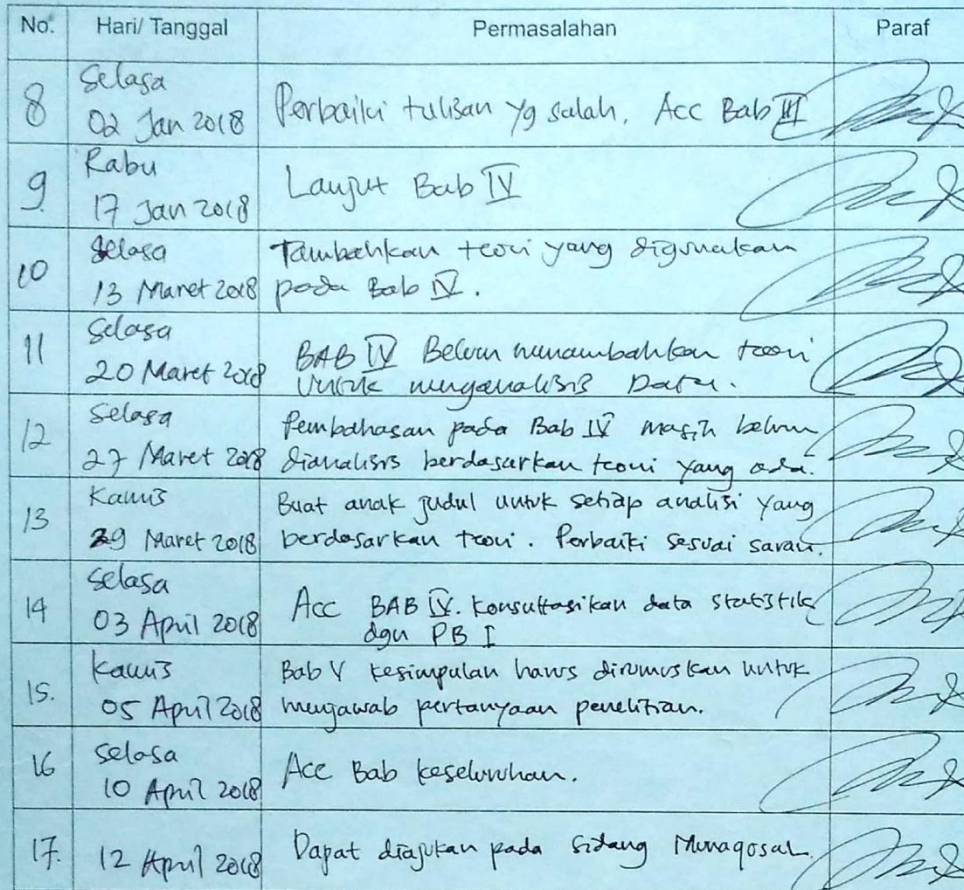 No. Hari/ Tanggal Permasalahan Paraf
8 Selasa
02 Jan 2018 Perbaiki tulisan yg salah. Acc Bab III
9. Rabu
17 Jan 2018 Lanjut Bab IV
10 Selasa Tambahkan teori yang digunakan
13 Maret 2018 pada Bab IV.
11 Selasa
20 Maret 2018 BAB IV Belum menambahkan teori
untuk menganalisis Data.
12 Selasa Pembahasan pada Bab IV masih belum
27 Maret 2018 dianalisis berdasarkan teori yang ada.
13 Kamis Buat anak judul untuk setiap analisi yang
29 Maret 2018 berdasarkan teori. Perbaiki sesuai saran.
14 Selasa
03 April 2018 Acc BAB IV. Konsultasikan data statistik
dgn PB I
15. Kamis Bab V kesimpulan harus dirumuskan untuk
05 April 2018 mengawab pertanyaan penelitian.
16 Selasa
10 April 2018 Acc Bab keseluruhan.
17. 12 April 2018 Dapat diajukan pada sidang Munaqosah.